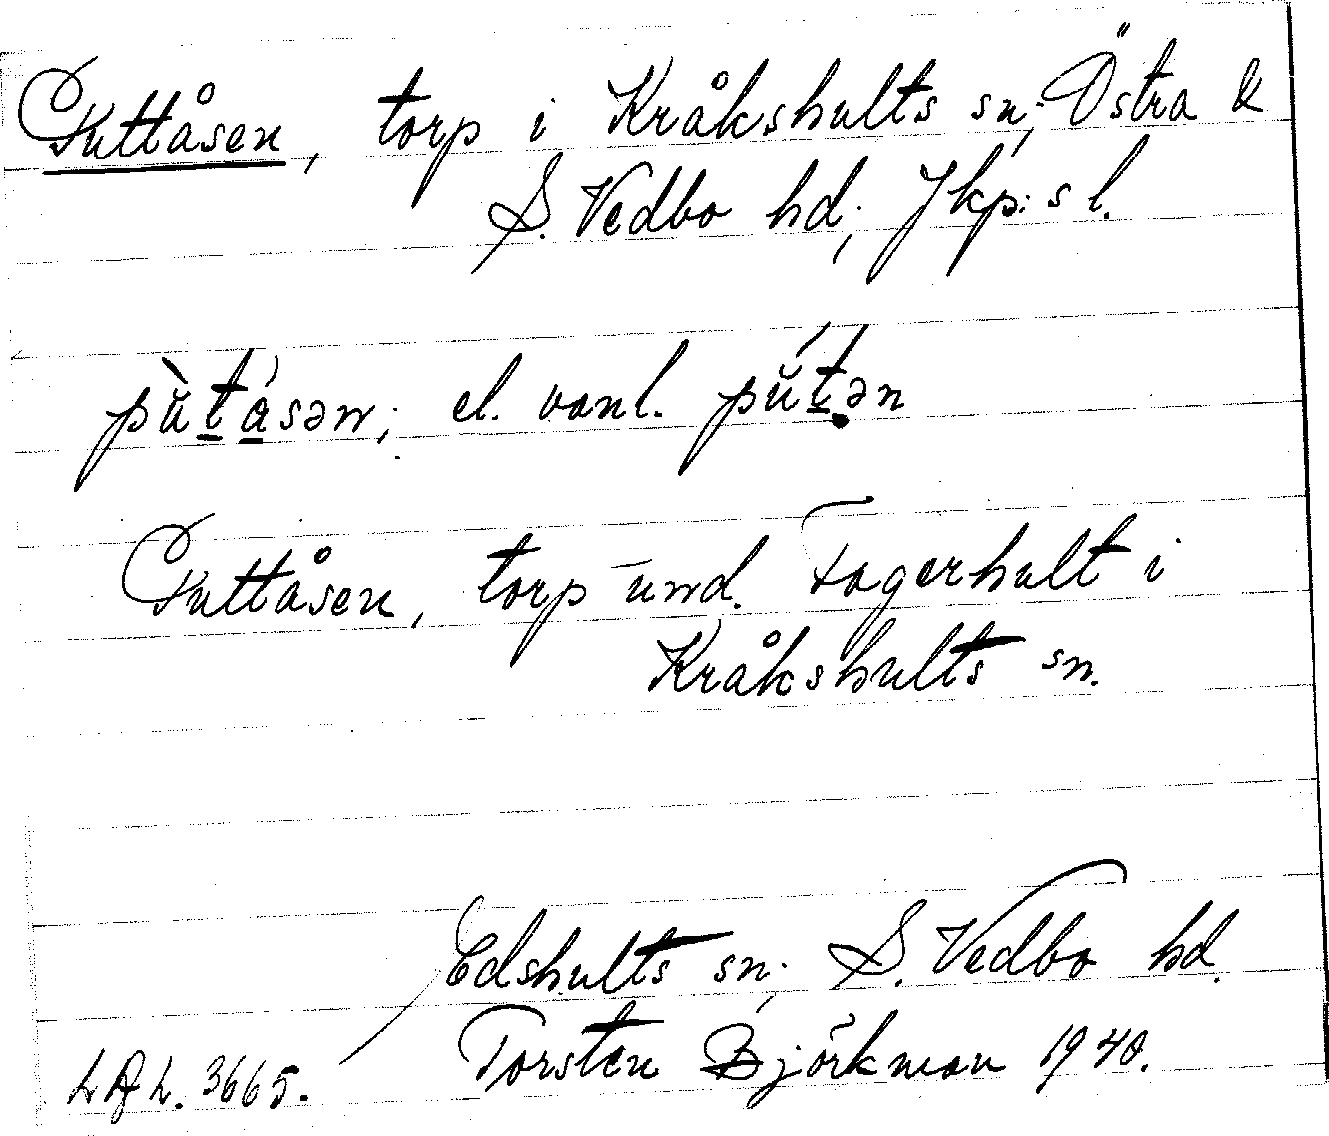 Puttåsen, torp i Kråkshults sn; Östra &
S. Vedbo hd; Jkp:s l.
pùt̲a̲sən; el. vanl. pút̲ən
Puttåsen, torp und. Fagerhult i
Kråkshults sn.
Edshults sn; S. Vedbo hd.
Torsten Björkman 1940.
LAL. 3665.